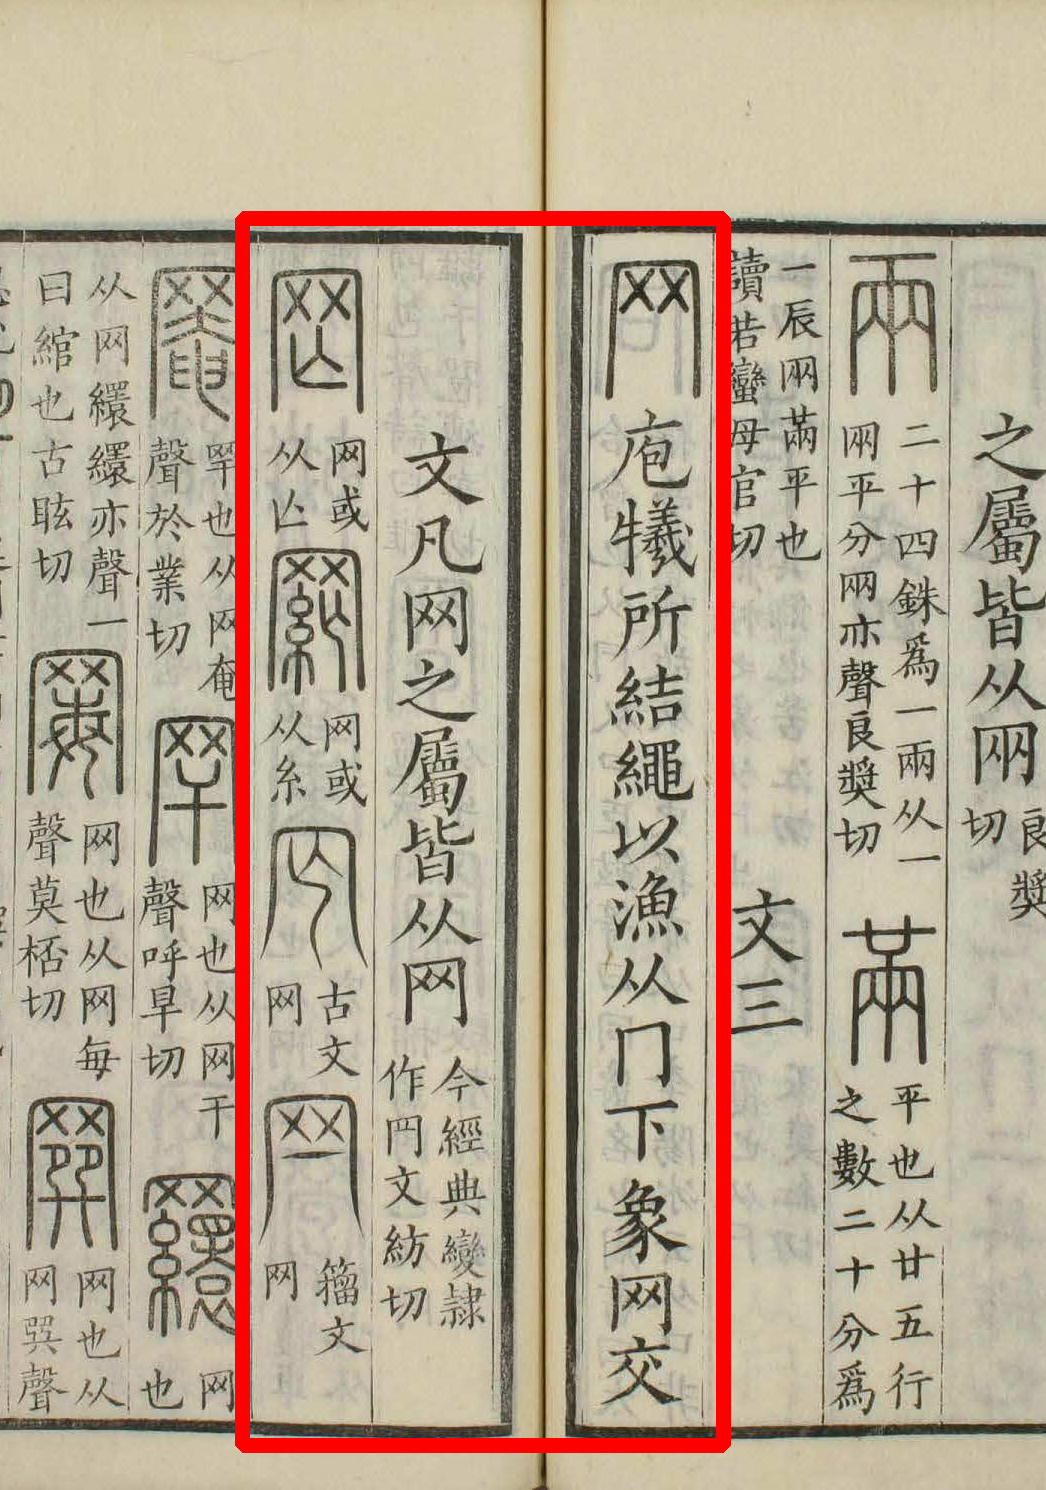 之屬皆从㒳良獎切
兩二十四銖爲一兩从一㒳平分㒳亦聲良獎切
㒼平也从廿五行之數二十分爲
一辰㒳㒼平也讀若蠻母官切
文三
网庖犧所結繩以漁从冂下象网交
文凡网之屬皆从网今經典變隷作𦉰文紡切
𦉯网或从亡
網网或从糸
𦉸古文网
𦉪籀文网
罨罕也从网奄聲於業切
罕网也从网干聲呼旱切
繯网也
从网繯繯亦聲一曰綰也古眩切
𦋡网也从网每聲莫桮切
𦌔网也从网巽聲